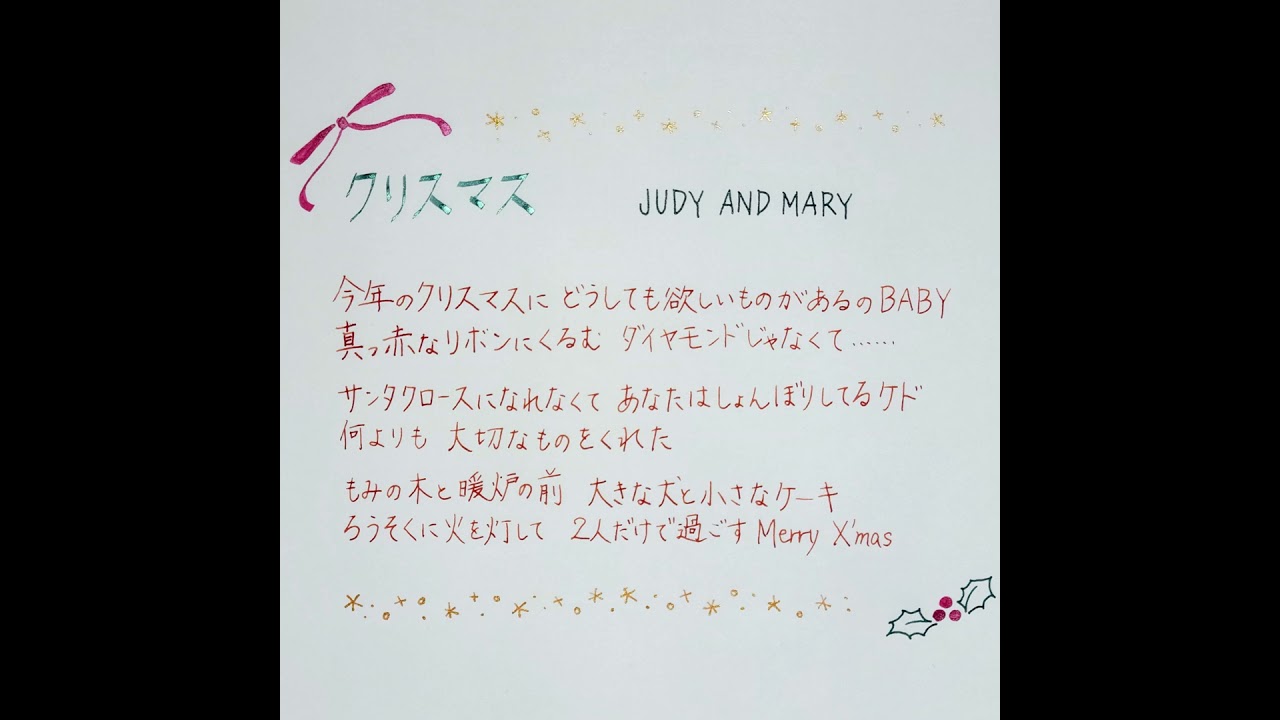 クリスマス JUDY AND MARY
今年のクリスマスに どうしても欲しいものがあるのBABY
真っ赤なリボンにくるむ ダイヤモンドじゃなくて……
サンタクロースになれなくて あなたはしょんぼりしてるケド
何よりも 大切なものをくれた
もみの木と暖炉の前 大きな犬と小さなケーキ
ろうそくに火を灯して 2人だけで過ごす Merry X'mas